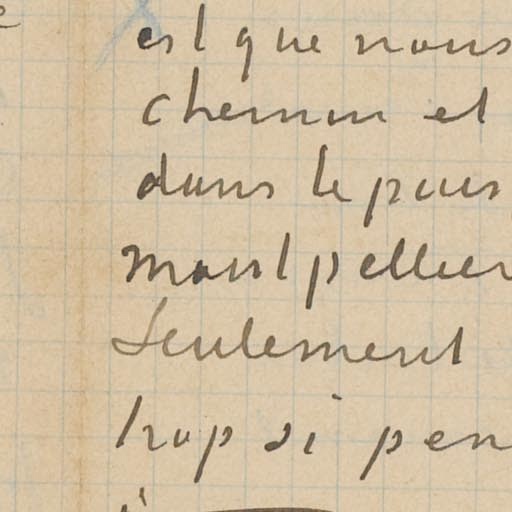 est que nous
chemin et
dans le pais
montpellier
Seulement
trop si pen